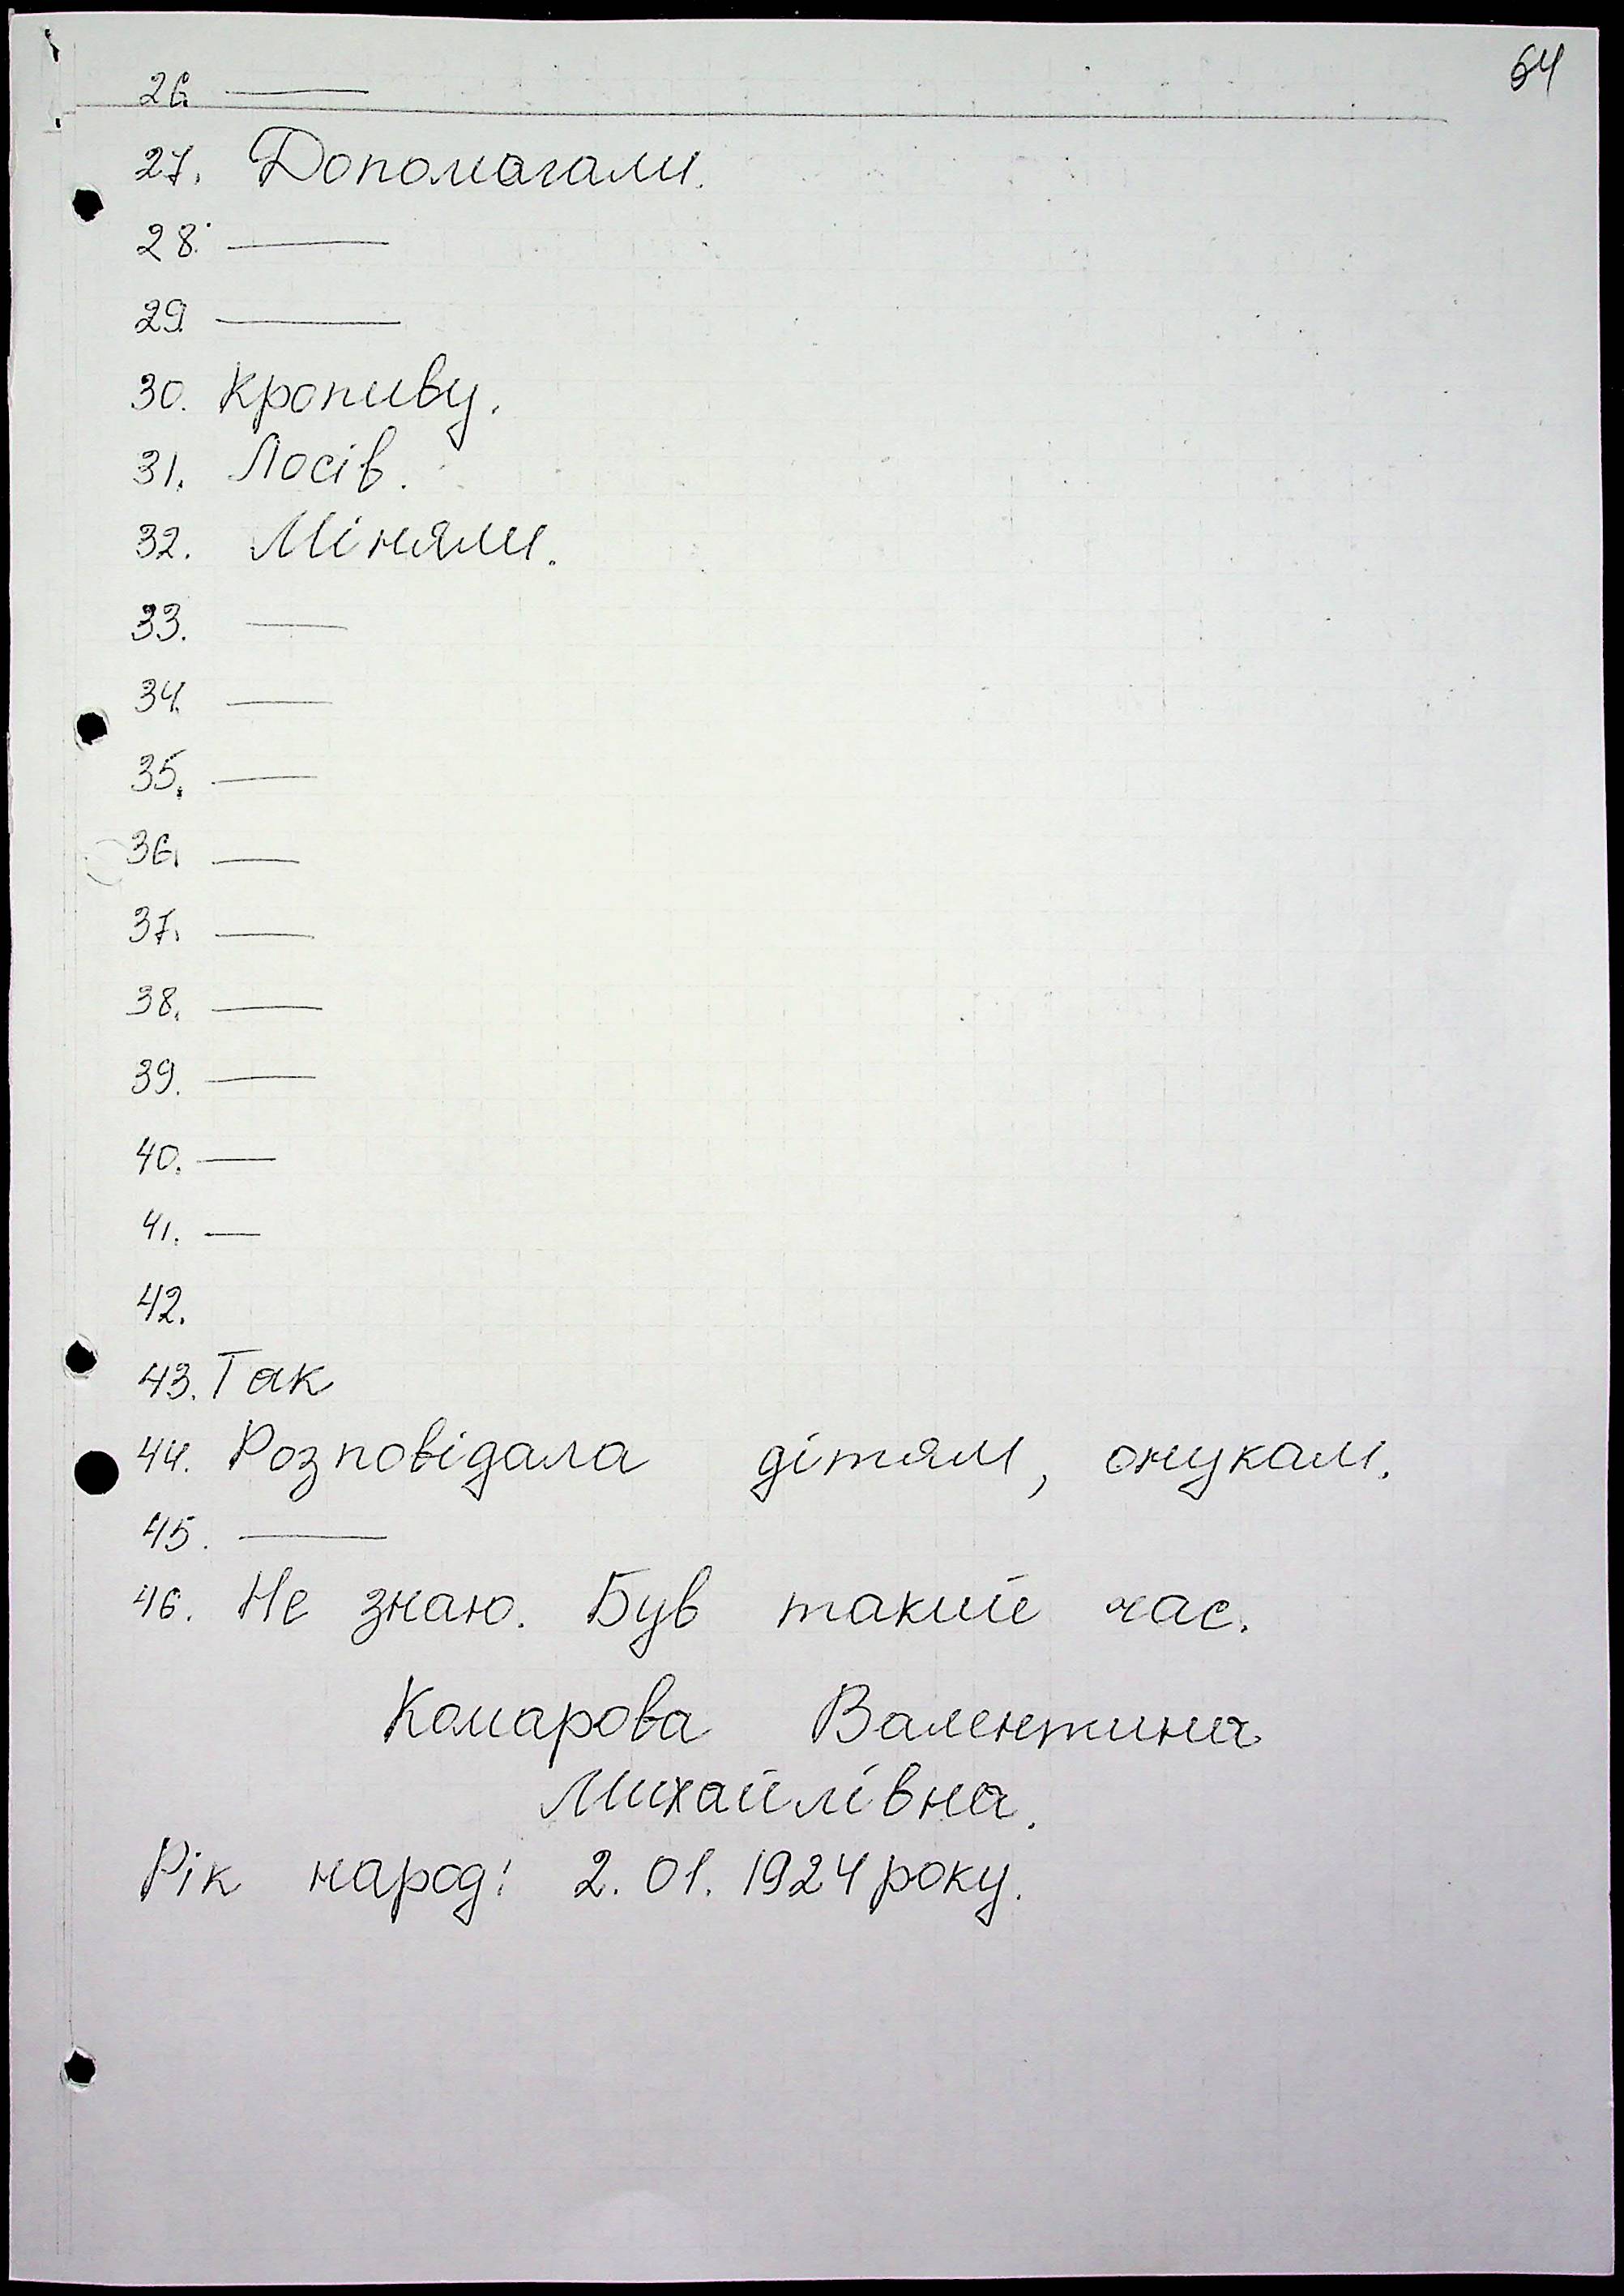 64
26. ——
27. Допомагали.
28. ——
29. ——
30. Кропиву.
31. Лосів.
32. Міняли.
33. ——
34. ——
35. ——
36. ——
37. ——
38. ——
39. ——
40. ——
41. —
42.
43. Так
44. Розповідала дітям, онукам.
45. ——
46. Не знаю. Був такий час.
Комарова Валентина
Михайлівна.
Рік народ: 2.01.1924 року.